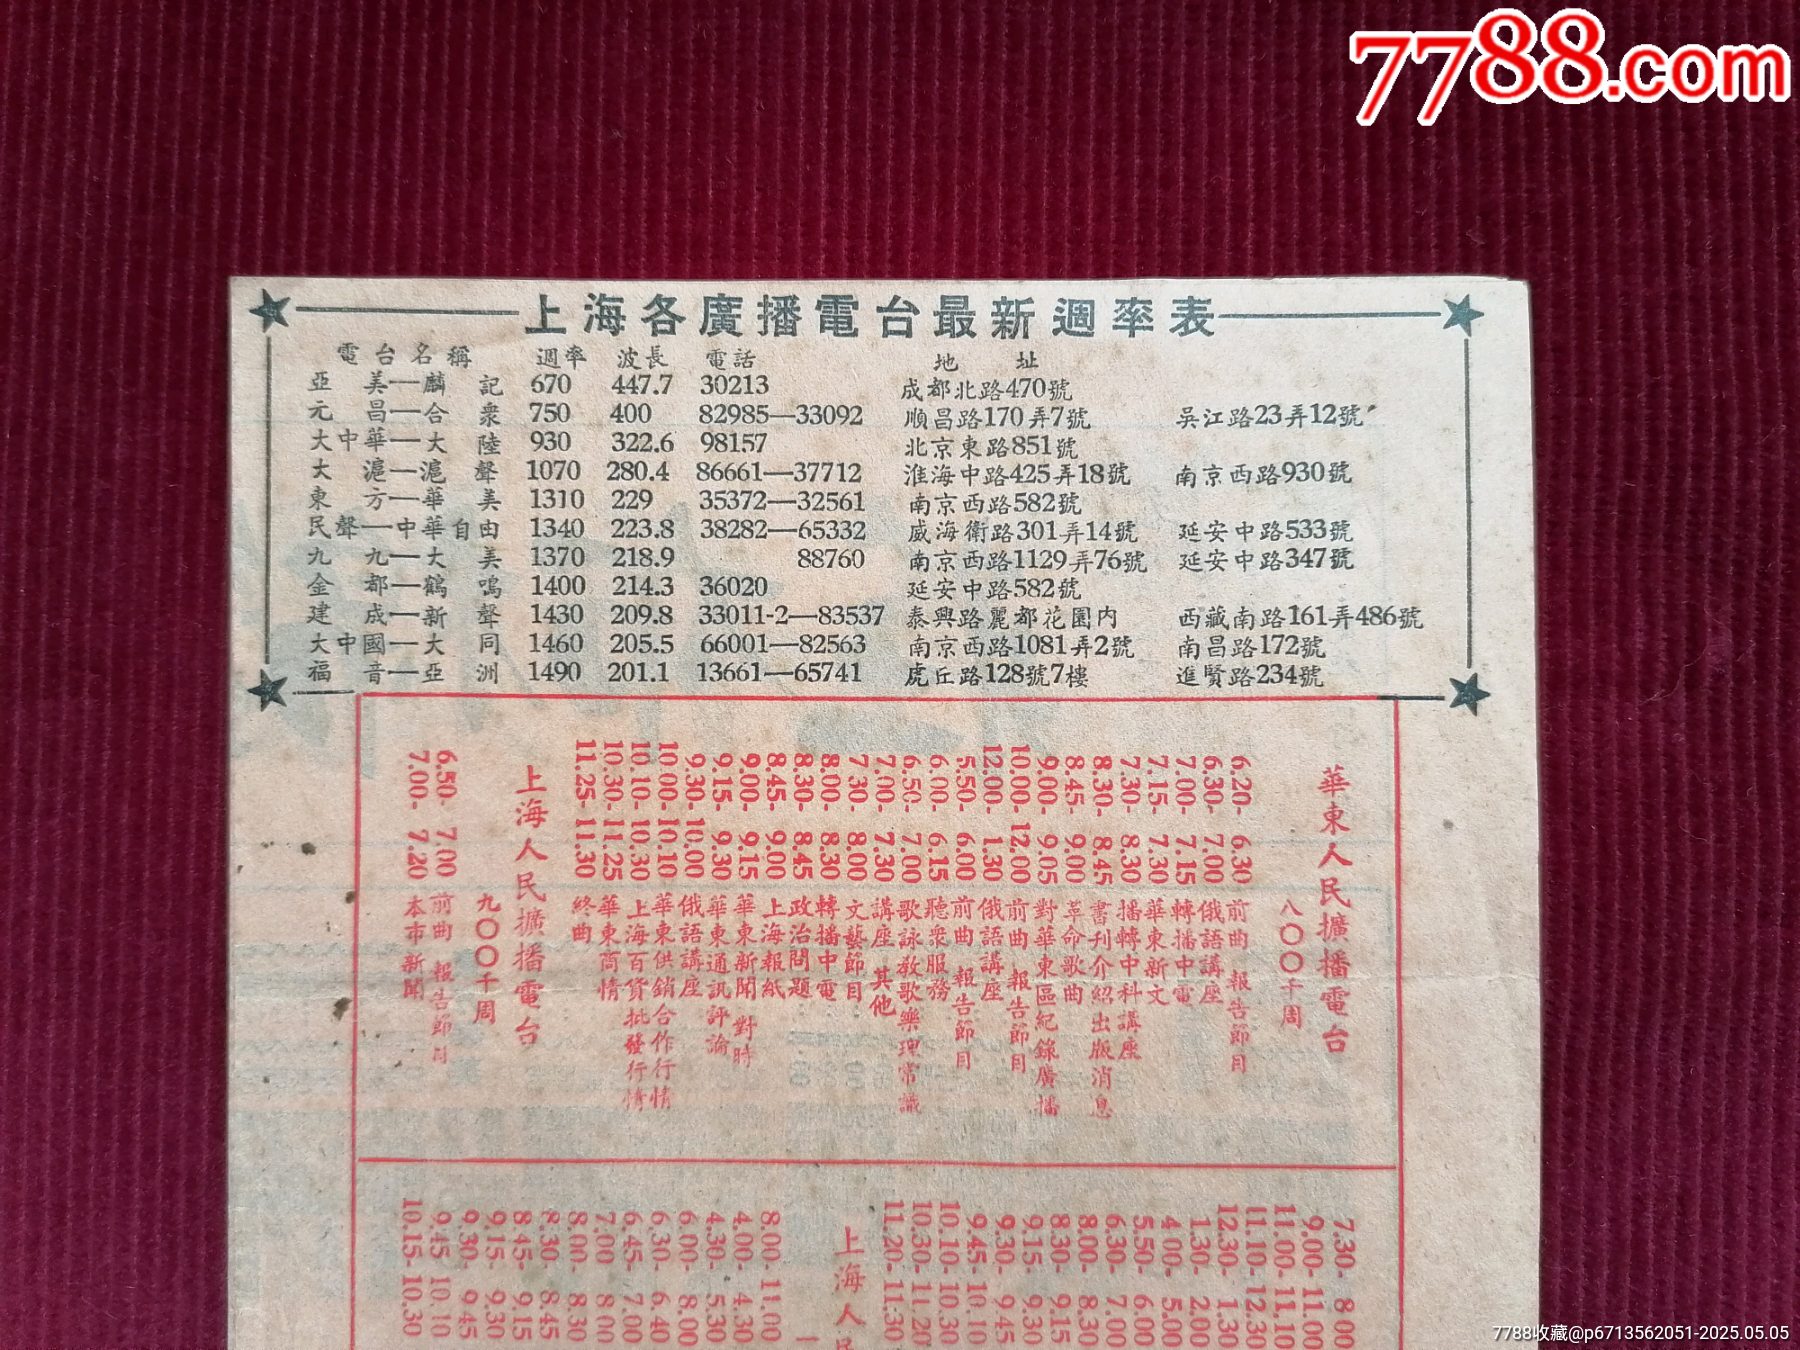 7788.com
上海各廣播電台最新週率表
電台名稱 週率 波長 電話 地址
亞美—麟記 670 447.7 30213 成都北路470號
元昌—合衆 750 400 82985—33092 順昌路170弄7號 吳江路23弄12號
大中華—大陸 930 322.6 98157 北京東路851號
大滬—滬聲 1070 280.4 86661—37712 淮海中路425弄18號 南京西路930號
東方—華美 1310 229 35372—32561 南京西路582號
民聲—中華自由 1340 223.8 38282—65332 威海衛路301弄14號 延安中路533號
九九—大美 1370 218.9 88760 南京西路1129弄76號 延安中路347號
金都—鶴鳴 1400 214.3 36020 延安中路582號
建成—新聲 1430 209.8 33011-2—83537 泰興路麗都花園內 西藏南路161弄486號
大中國—大同 1460 205.5 66001—82563 南京西路1081弄2號 南昌路172號
福音—亞洲 1490 201.1 13661—65741 虎丘路128號7樓 進賢路234號
華東人民擴播電台
八〇〇千周
6.20- 6.30 前曲 報告節目
6.30- 7.00 俄語講座
7.00- 7.15 轉播中電
7.15- 7.30 華東新文
7.30- 8.30 播轉中科講座
8.30- 8.45 書刊介紹出版消息
8.45- 9.00 革命歌曲
9.00- 9.05 對華東區紀錄廣播
10.00- 12.00 前曲 報告節目
12.00- 1.30 俄語講座
5.50- 6.00 前曲 報告節目
6.00- 6.15 聽衆服務
6.50- 7.00 歌詠教歌樂理常識
7.00- 7.30 講座 其他
7.30- 8.00 文藝節目
8.00- 8.30 轉播中電
8.30- 8.45 政治問題
8.45- 9.00 上海報紙
9.00- 9.15 華東新聞 對時
9.15- 9.30 華東通訊評論
9.30- 10.00 俄語講座
10.00-10.10 華東供銷合作行情
10.10-10.30 上海百貨批發行情
10.30-11.25 華東商情
11.25-11.30 終曲
上海人民擴播電台
九〇〇千周
6.50- 7.00 前曲 報告節目
7.00- 7.20 本市新聞
7.30- 8.00
9.00-11.00
11.00-11.10
11.10-12.30
12.30- 1.30
1.30- 2.00
4.00- 5.00
5.50- 6.00
6.30- 7.00
8.00- 8.30
8.30- 9.15
9.15- 9.30
9.30- 9.45
9.45-10.10
10.10-10.30
10.30-11.20
11.20-11.30
上海人
8.00-11.00
4.00- 4.30
4.30- 5.30
6.00- 8.00
6.30- 6.40
6.45- 7.00
7.00 8.00
8.00- 8.30
8.30- 8.45
8.45- 9.15
9.15- 9.30
9.30- 9.45
9.45- 10.10
10.15-10.30
7788收藏@p6713562051-2025.05.05